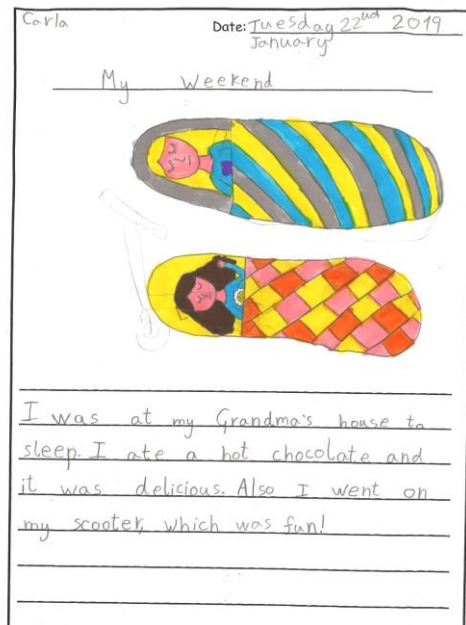 Carla
Date: Tuesday 22nd 2019
January
My Weekend
I was at my Grandma's house to
sleep. I ate a hot chocolate and
it was delicious. Also I went on
my scooter, which was fun!